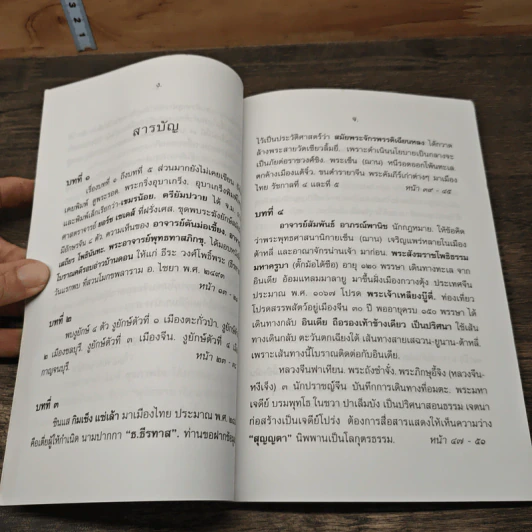 สารบัญ
บทที่ ๑
เรื่องบทที่ ๑ ถึงบทที่ ๕ ส่วนมากยังไม่เคยเขียน
เคยพิมพ์
และพิมพ์เล็กเรียกว่าเขมรน้อย. ตรียัมปวาย ได้
ศาสตราจารย์ ยอร์ช เซเดส์ ที่ฝรั่งเศส.
มีอักษรจีน ๔ ตัว ความเห็นของ อาจารย์ตันม่อเซี้ยง,
เสถียร โพธินันทะ, พระอาจารย์พุทธทาสภิกขุ, ได้มอบ
โบราณคดีรอบอ่าวบ้านดอน ให้แก่ ธีระ วงศ์โพธิ์พระ
วันแรกพบ ที่สวนโมกขพลาราม อ. ไชยา พ.ศ. ๒๔๙๓
หน้า ๑๓ -
บทที่ ๒
พบงูยักษ์ ๔ ตัว งูยักษ์ตัวที่ ๑ เมืองตะกั่วป่า.
๒ เมืองชลบุรี. งูยักษ์ตัวที่ ๓ เมืองจีน. งูยักษ์ตัวที่ ๔
กาญจนบุรี.
หน้า ๒๓ -
บทที่ ๓
ซินแส กิมเซ็ง แซ่เล้า มาเมืองไทย ประมาณ พ.ศ.
คือเตี่ยผู้ให้กำเนิด นามปากกา "ธ.ธีรทาส". ท่านขอฝากข้อมูล
ไว้เป็นประวัติศาสตร์ว่า สมัยพระจักรพรรดิเฉียนหลง ได้กวาด
ล้างพระสายวัดเซียวลิ้มยี่. เพราะดำเนินนโยบายเป็นกลางจะ
เป็นภัยต่อราชวงศ์ชิง. พระเซ็น (ฌาน) หนีรอดออกไพ้นทะเล
ตกค้างเมืองแต้จิ๋ว. ชนตำรายาจีน พระคัมภีร์เก่าต่างๆ มาเมือง
ไทย รัชกาลที่ ๔ และที่ ๕
หน้า ๓๙ - ๔๕
บทที่ ๔
อาจารย์สัมพันธ์ อาภรณ์พานิช นักกฎหมาย. ให้ข้อคิด
ว่าพระพุทธศาสนานิกายเซ็น (ฌาน) เจริญแพร่หลายในเมือง
ต้าหลี่ และอาณาจักรน่านเจ้า มาก่อน. พระสังฆราชโพธิธรรม
มหาครูบา (ตั๊กม้อไต้ซือ) อายุ ๑๒๐ พรรษา เดินทางทะเล จาก
อินเดีย อ้อมแหลมมาลายู มาขึ้นฝั่งเมืองกวางตุ้ง ประเทศจีน
ประมาณ พ.ศ. ๑๐๖๗ โปรด พระเจ้าเหลียงบู๊ตี่. ท่องเที่ยว
โปรดสรรพสัตว์อยู่เมืองจีน ๓๐ ปี พออายุครบ ๑๕๐ พรรษา ได้
เดินทางกลับ อินเดีย ถือรองเท้าข้างเดียว เป็นปริศนา ใช้เส้น
ทางเดินกลับ ตะวันตกเฉียงใต้ เส้นทางสายเสฉวน-ยูนาน-ต้าหลี่.
เพราะเส้นทางนี้โบราณติดต่อกับอินเดีย.
หลวงจีนฟาเหียน. พระถังซำจั๋ง, พระภิกษุอี้จิง (หลวงจีน-
หงีเจ็ง) ๓ นักปราชญ์จีน บันทึกการเดินทางที่อมตะ. พระมหา
เจดีย์ บรมพุทโธ ในชวา ปาเล็มบัง เป็นปริศนาสอนธรรม เจตนา
ก่อสร้างเป็นเจดีย์โปร่ง ต้องการสื่อสารแสดงให้เห็นความว่าง
"สุญญตา" นิพพานเป็นโลกุตรธรรม.
หน้า ๔๗ - ๕๖